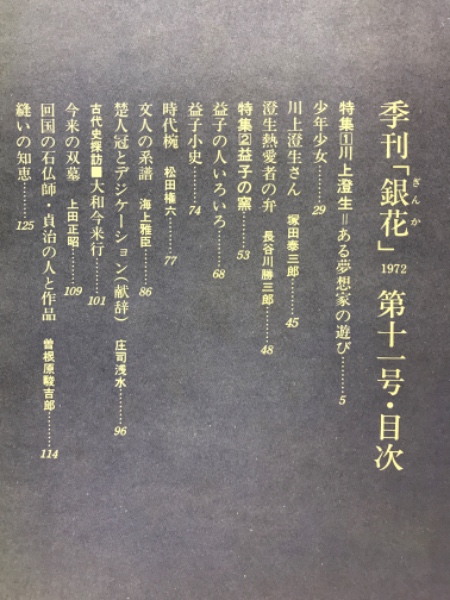 季刊「銀花」1972 第十一号・目次
ぎんか
特集1川上澄生=ある夢想家の遊び………5
少年少女………29
川上澄生さん 塚田泰三郎………45
澄生熱愛者の弁 長谷川勝三郎………48
特集2益子の窯………53
益子の人いろいろ………68
益子小史………74
時代椀 松田権六………77
文人の系譜 海上雅臣………86
楚人冠とデジケーション(献辞) 庄司浅水………96
古代史探訪■大和今来行………101
今来の双墓 上田正昭………109
回国の石仏師・貞治の人と作品 曽根原駿吉郎………114
縫いの知恵………125